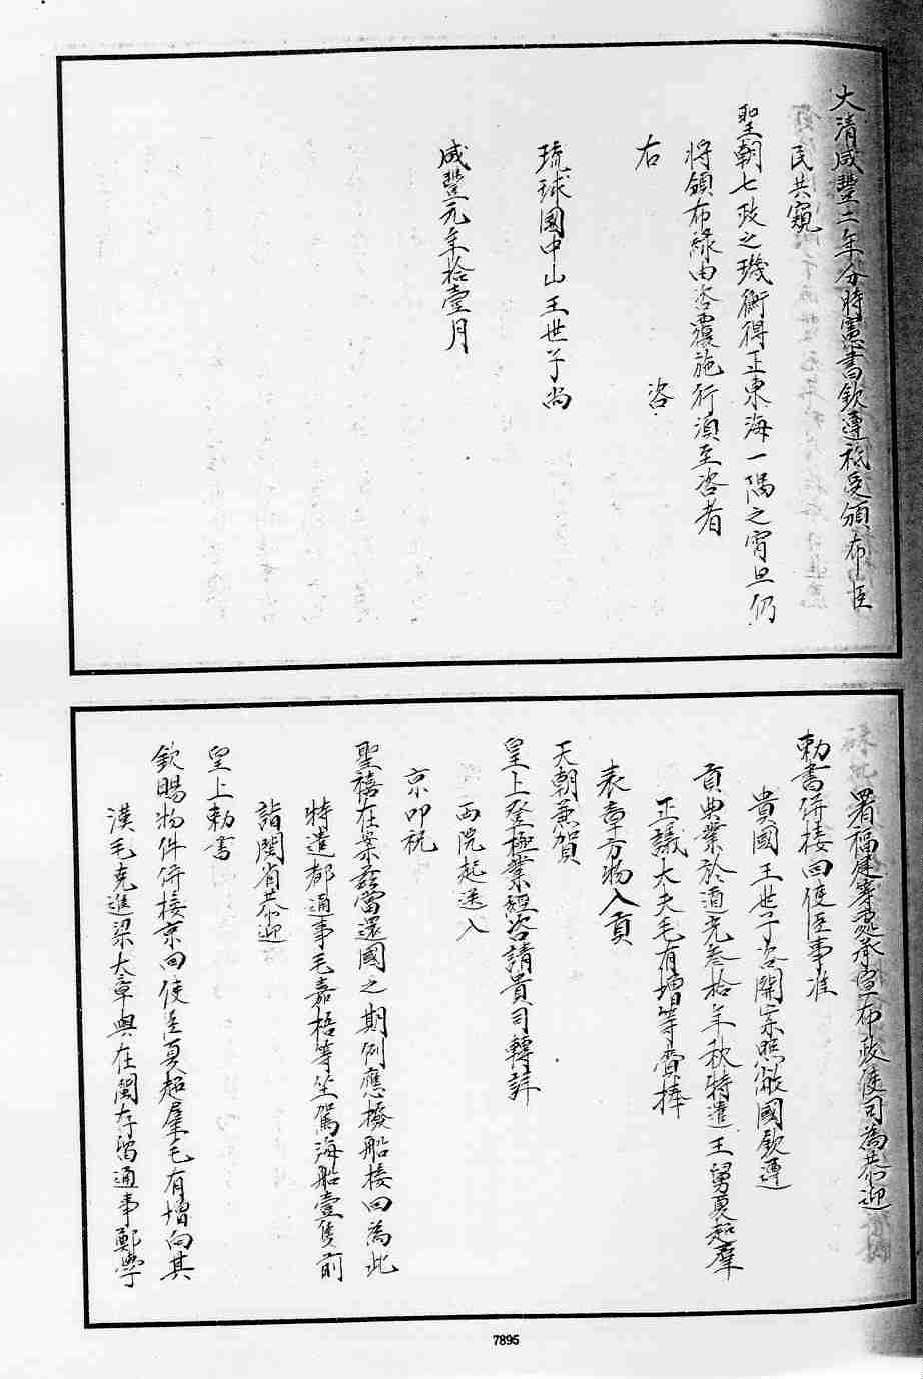 大清咸豐二年分時憲書欽遵祗受頒布臣
民共窺
聖朝七政之璣衡得正東海一隅之宵旦仍
將領布緣由咨覆施行須至咨者
右 咨
琉球國中山王世子尚
咸豐元年拾壹月
署福建等處承宣布政使司為恭迎
勅書併接回使臣事准
貴國王世子咨開案照敝國欽遵
貢典業於道光叁拾年秋特遣王舅夏超群
正議大夫毛有增等齎捧
表章方物入貢
天朝兼賀
皇上登極業經咨請貴司轉詳
兩院起送入
京叩祝
聖禧在案茲當還國之期例應撥船接回為此
特遣都通事毛嘉梧等坐駕海船壹隻前
詣閩省恭迎
皇上勅書
欽賜物件併接京回使臣夏超群毛有增向其
漢毛克進梁大章與在閩存留通事鄭學
7895